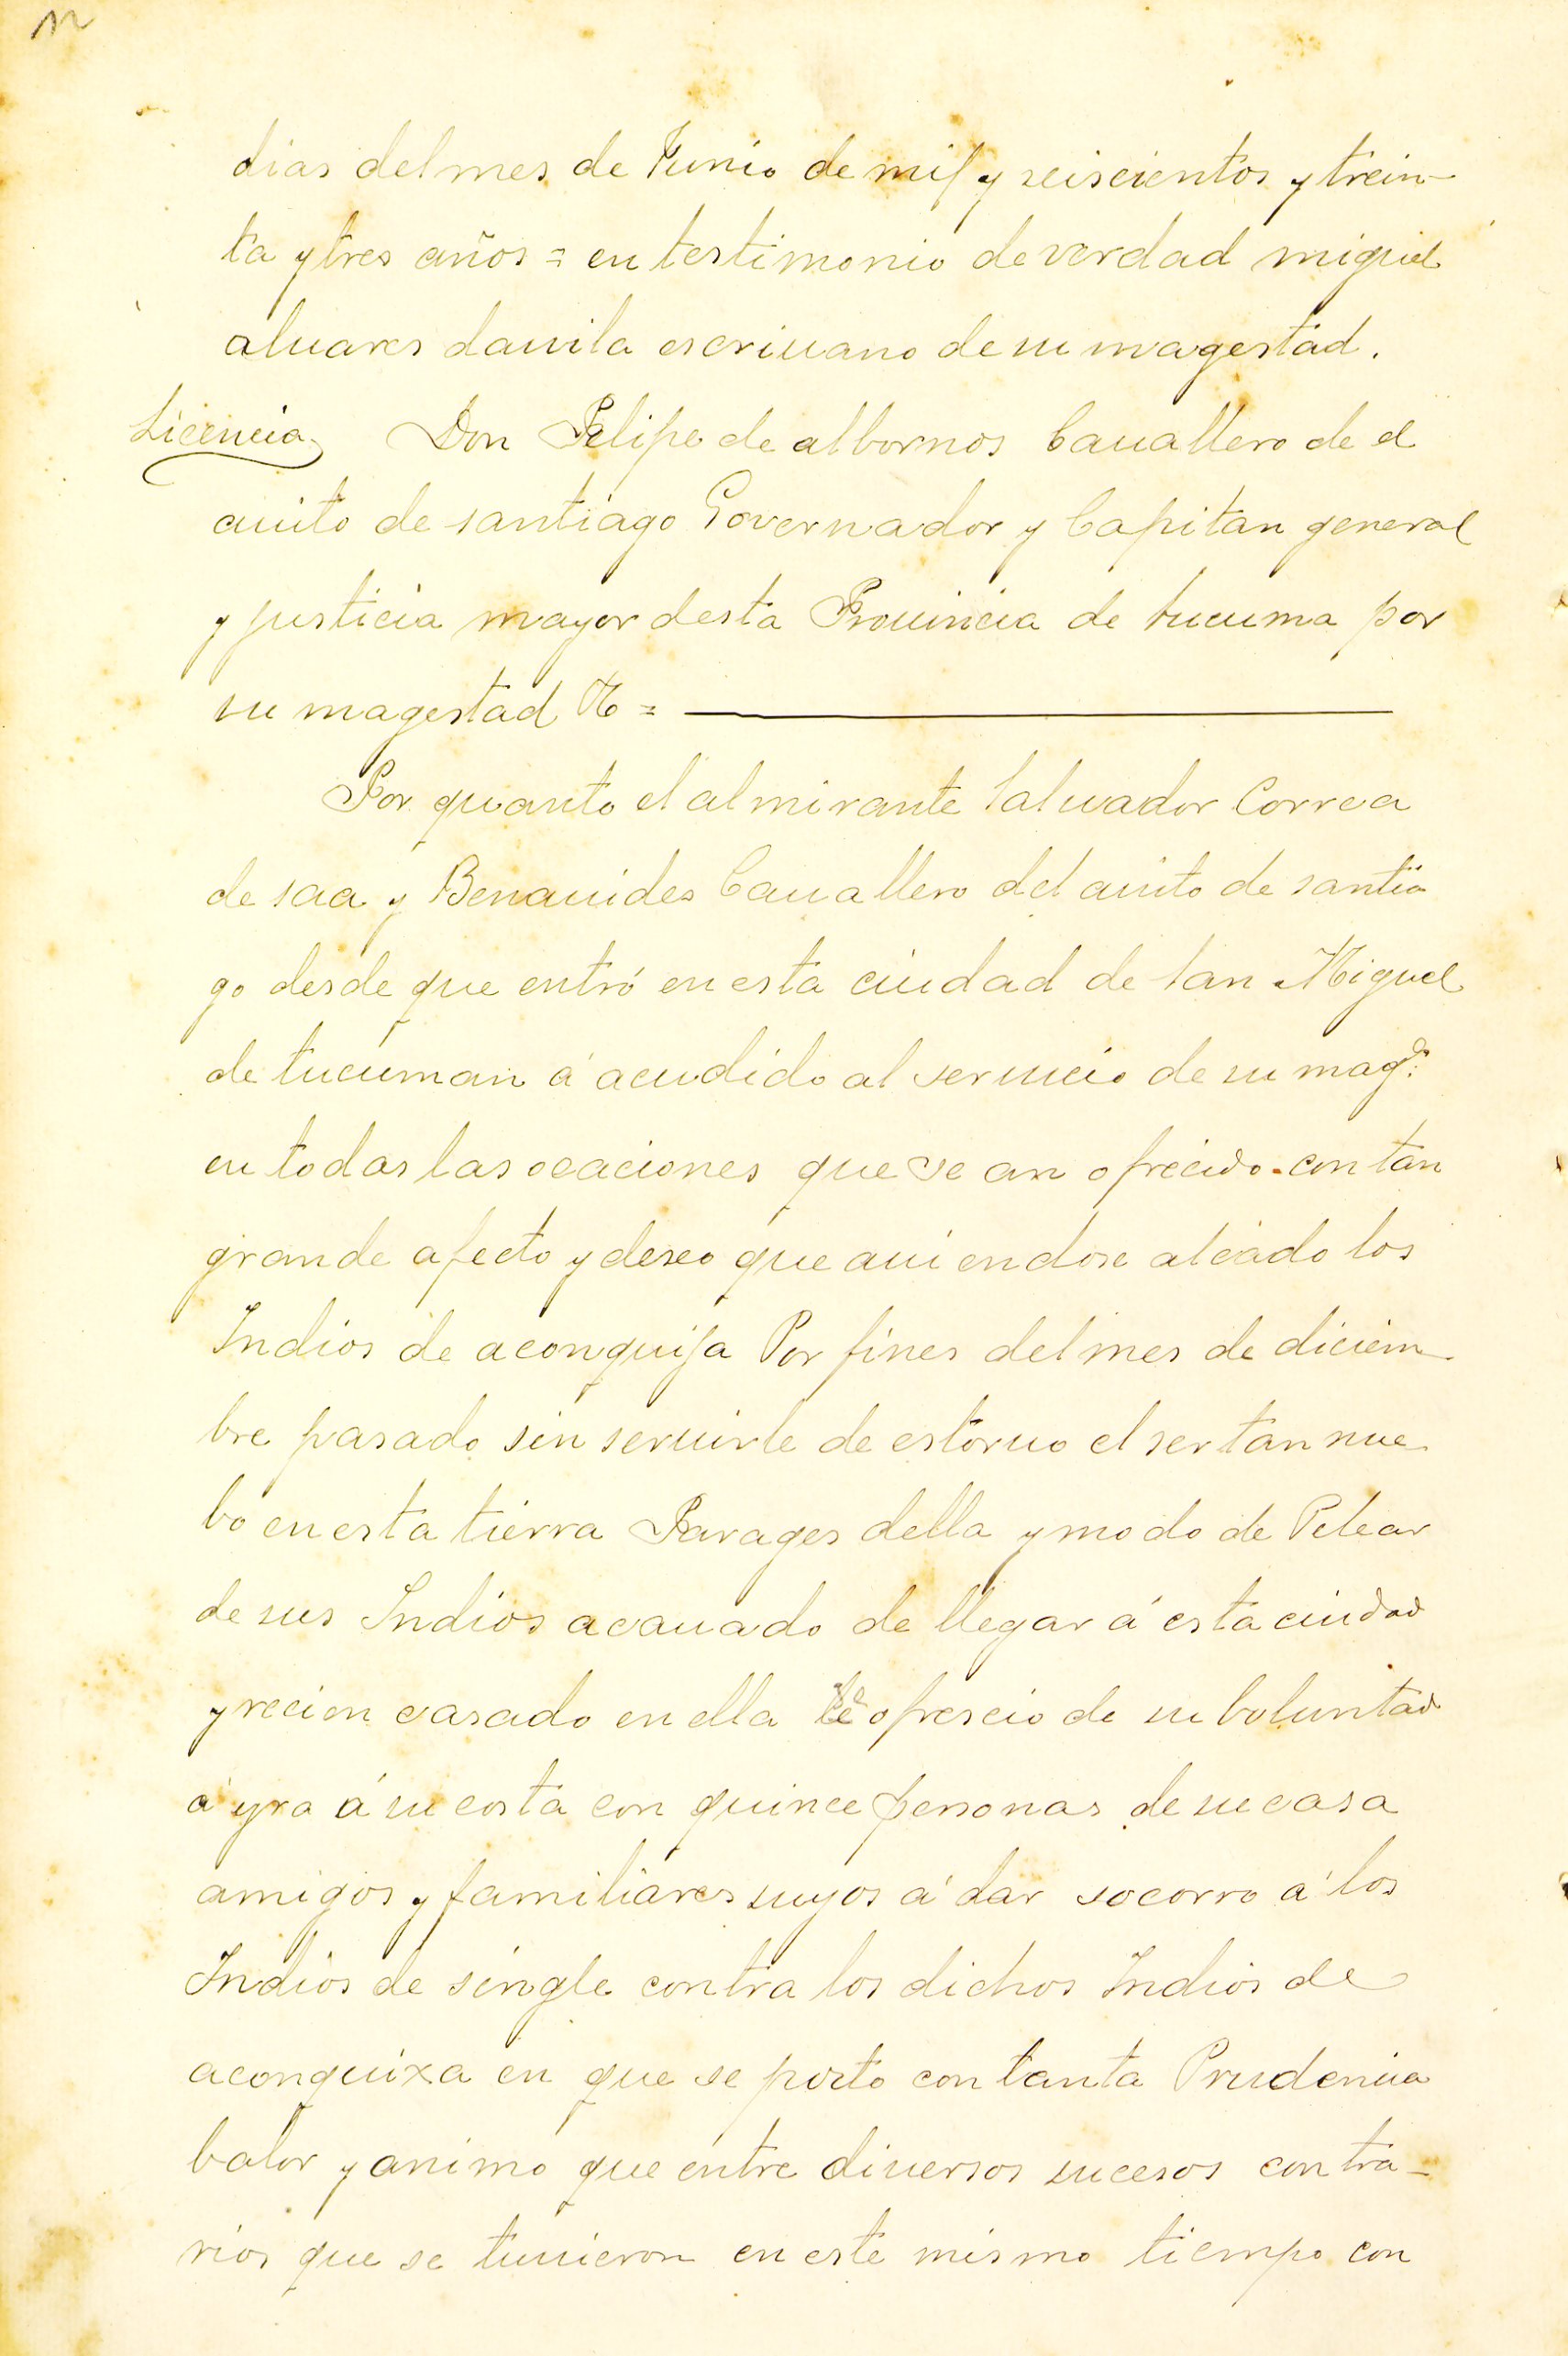 12
dias del mes de Junio de mil y seiscientos y trein-
ta y tres años = en testimonio de verdad miguel
aluares dauila escriuano de su magestad.
Licencia Don Felipe de albornos Cauallero de el
auito de santiago Governador y Capitan general
y justicia mayor desta Prouincia de tucuma por
su magestad &c =
Por quanto el almirante Saluador Correa
de saa y Benauides Cauallero del auito de santia
go desde que entró en esta ciudad de San Miguel
de tucuman á acudido al seruicio de su magd.
en todas las ocaciones que se an ofrecido con tan
grande afecto y deseo que auiendose alcado los
Indios de aconquija Por fines del mes de diciem-
bre pasado sin seruirle de estoruo el ser tan nue
bo en esta tierra Parages della y modo de Pelear
de sus Indios acauado de llegar á esta ciudad
y recien casado en ella se ofrescio de su boluntad
á yr a á su costa con quince personas de su casa
amigos y familiares suyos á dar socorro á los
Indios de single contra los dichos Indios de
aconquixa en que se porto con tanta Prudencia
balor y animo que entre diuersos sucesos contra-
rios que se tuuieron en este mismo tiempo con